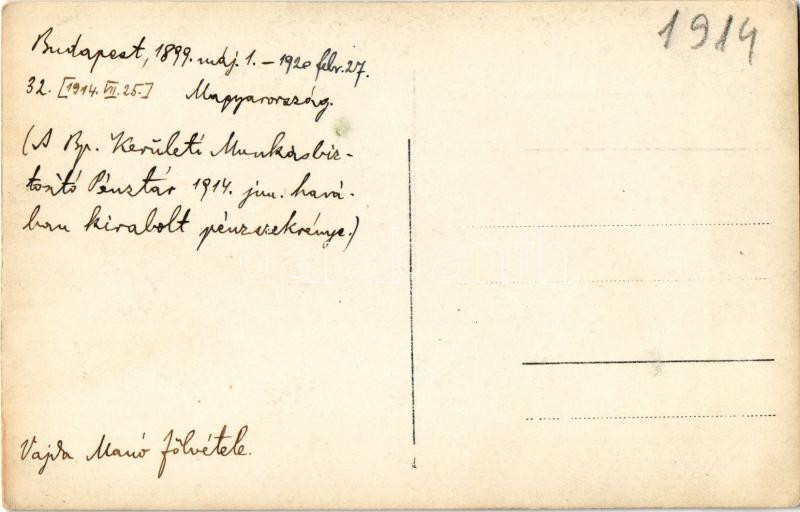 1914
Budapest, 1899. máj. 1. – 1920 febr. 27.
32. [1914. VII. 25.] Magyarország.
(A Bp. Kerületi Munkásbiz-
tosító Pénztár 1914. jun. havá-
ban kirabolt pénzszekrénye.)
darabanth
Vajda Manó fölvétele.